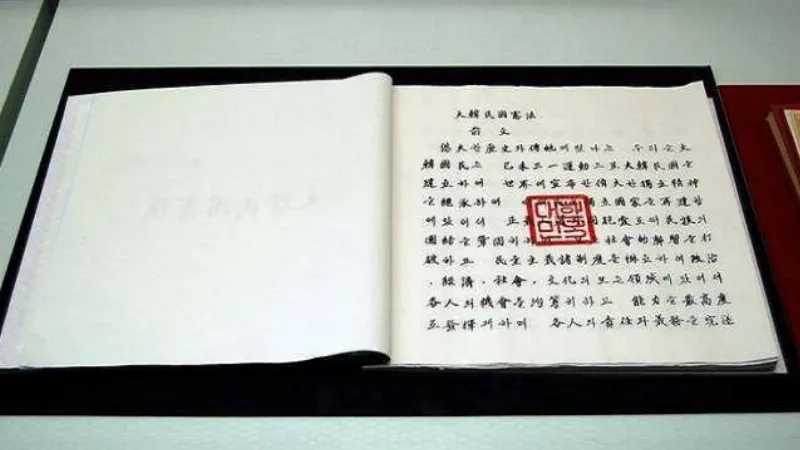 大韓民國憲法
前文
悠久한 歷史와 傳統에 빛나는 우리들 大
韓國民은 己未三一運動으로 大韓民國을
建立하여 世界에 宣布한 偉大한 獨立精神
을 繼承하여 立國家를 再建함
에 있어서 正義 同胞愛로써 民族의
團結을 鞏固히 社會的 弊習을 打
破하고 民主主義諸制度를 樹立하여 政治
, 經濟, 社會, 文化의 모든 領域에 있어서
各人의 機會를 均等히 하고 能力을 最高度
로 發揮케하며 各人의 責任과 義務를